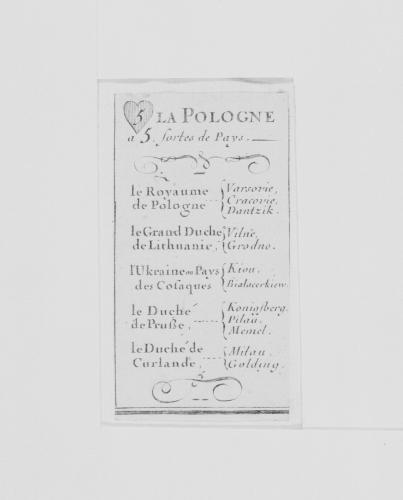 5 LA POLOGNE
a 5 sortes de Pays.
le Royaume de Pologne { Varsovie, Cracovie, Dantzik.
le Grand Duché de Lithuanie, { Vilne, Grodno.
l'Ukraine ou Pays des Cosaques { Kiou, Bialacerkiew.
le Duché de Prusse, { Konigsberg, Pilau, Memel.
le Duché de Curlande, { Milau, Golding.
5